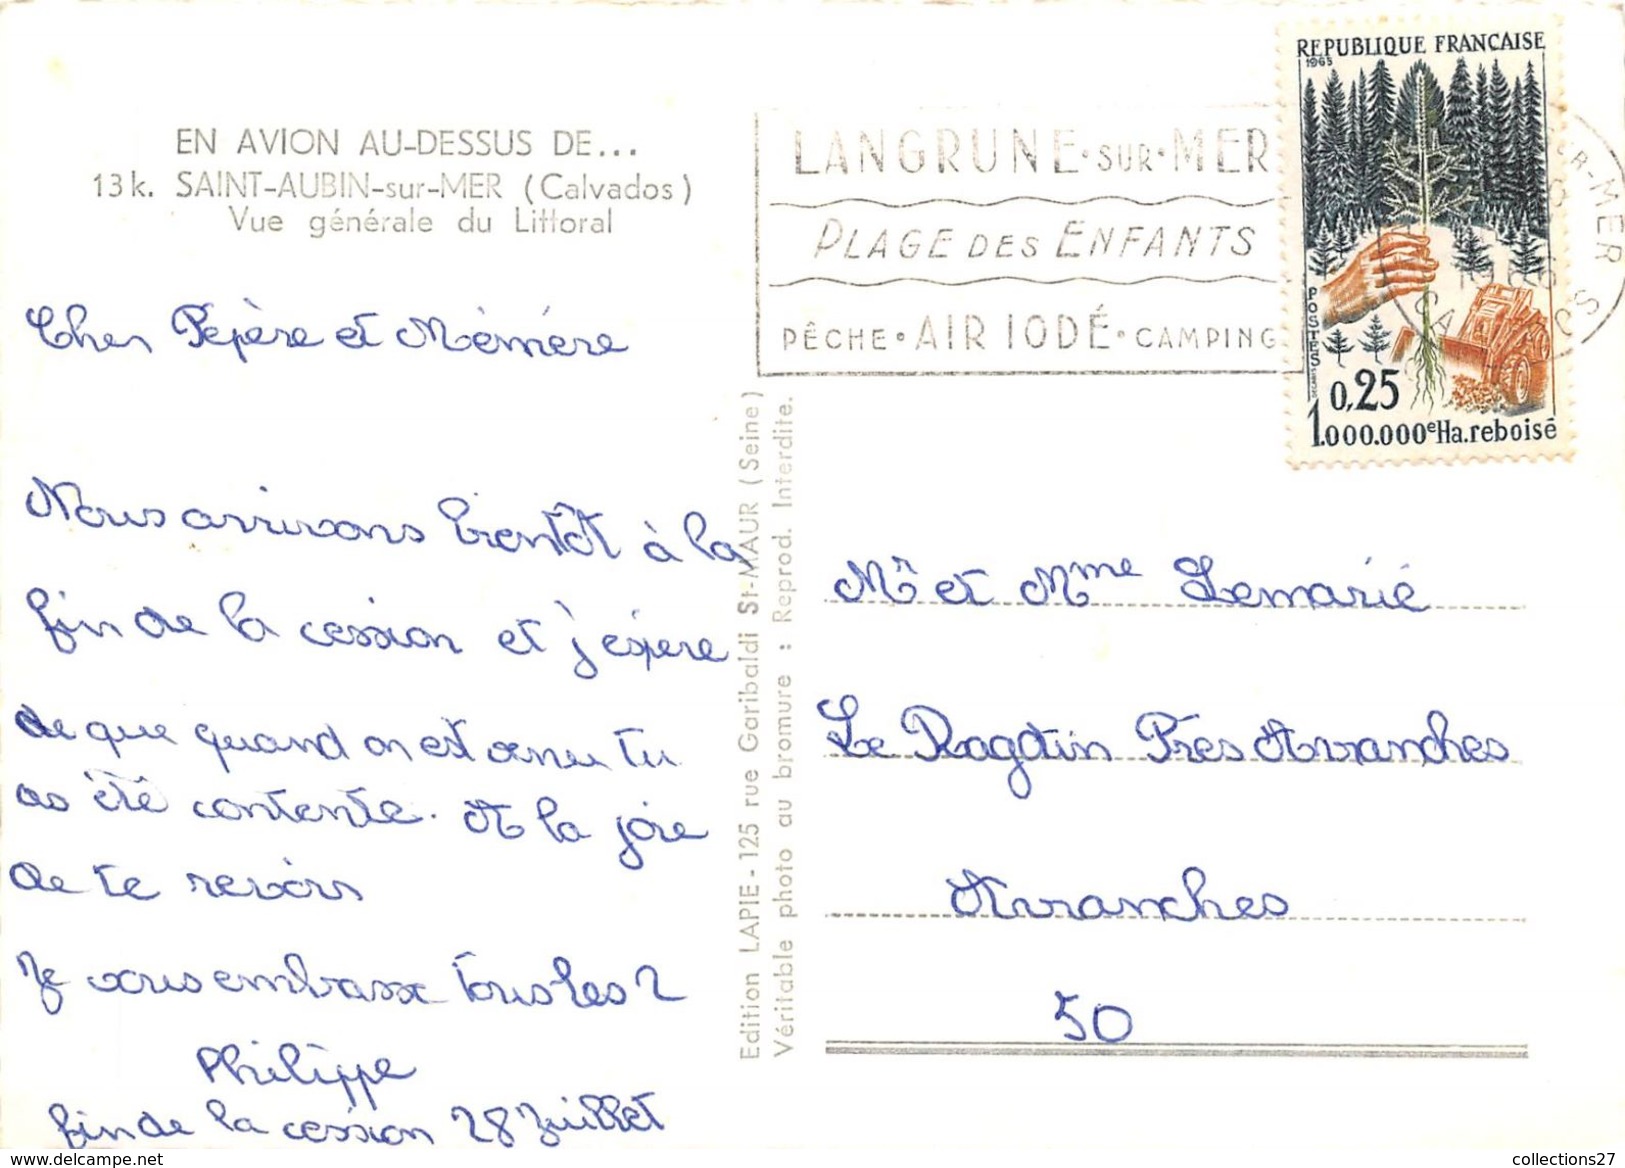 EN AVION AU-DESSUS DE...
13k. SAINT-AUBIN-sur-MER (Calvados)
Vue générale du Littoral
Cher Pépère et Mémére
Nous arrivons bientôt à la
fin de la cession et j'éspere
de que quand on est venu tu
as été contente. A la joie
de te revoir
Je vous embrasse tous les 2
Philippe
fin de la cession 28 Juillet
Edition LAPIE - 125 rue Garibaldi St-MAUR (Seine)
Véritable photo au bromure : Reprod. Interdite.
LANGRUNE·SUR·MER
PLAGE DES ENFANTS
PÊCHE·AIR IODÉ·CAMPING
REPUBLIQUE FRANCAISE
1965
POSTES
DECARIS
0,25
1.000.000e Ha.reboisé
UR-MER
CALVADOS
Mr et Mme Lemarié
Le Ragotin Prés Avranches
Avranches
50
collections27